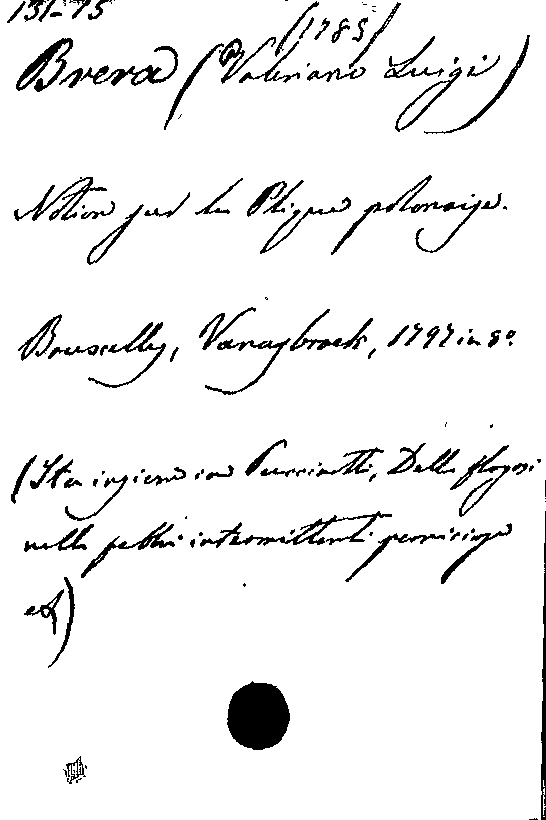 131-75
(1785)
Brera (Valeriano Luigi)
Notion sur la Plique polonaise.
Bruxelles, 1797 in 8º.
(Sta insieme in Puccinotti, Delle flogosi
nelle febbri intermittenti perniciose